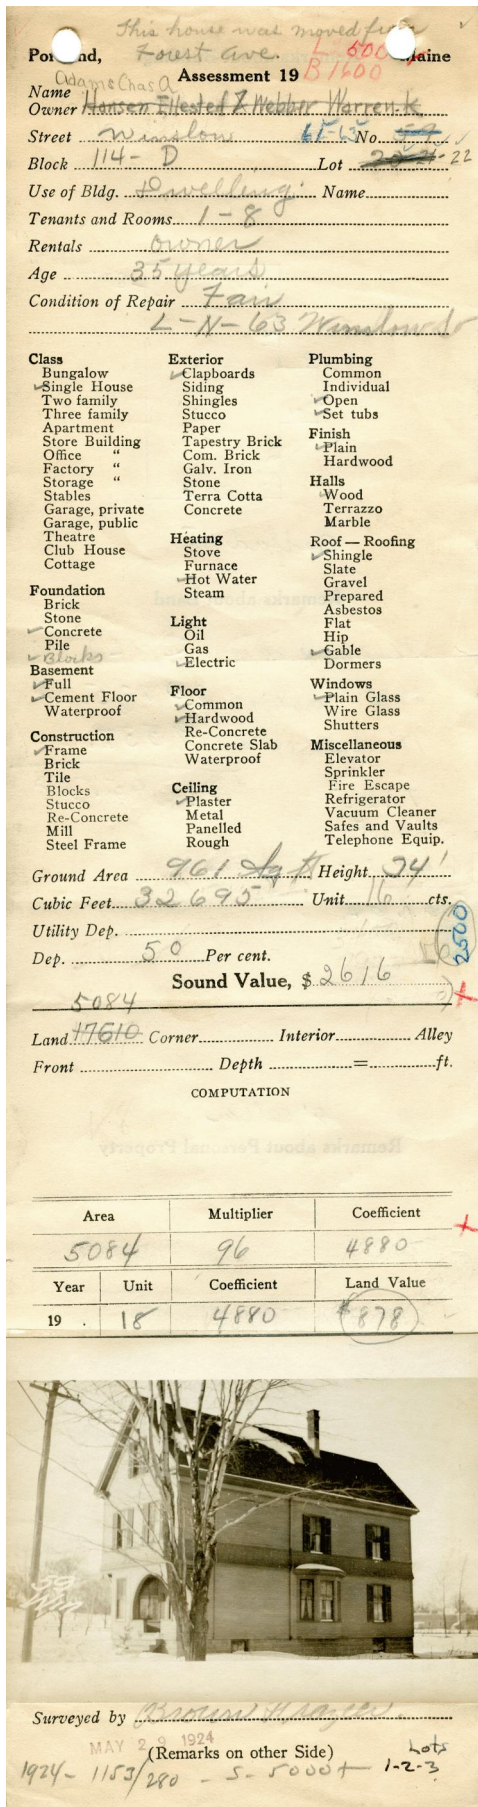 This house was moved from
Forest Ave.
Portland, Maine
L 500
B 1600
Assessment 19
Adams Chas A
Name
Owner Hansen Ellested & Webber Warren K
Street Winslow 61-65 No. 59
Block 114-D Lot 20-21-22
Use of Bldg. Dwelling Name
Tenants and Rooms 1-8
Rentals owner
Age 35 years
Condition of Repair Fair
L-N-63 Winslow St
Class
Bungalow
Single House
Two family
Three family
Apartment
Store Building
Office "
Factory "
Storage "
Stables
Garage, private
Garage, public
Theatre
Club House
Cottage
Foundation
Brick
Stone
Concrete
Pile
Blocks
Basement
Full
Cement Floor
Waterproof
Construction
Frame
Brick
Tile
Blocks
Stucco
Re-Concrete
Mill
Steel Frame
Exterior
Clapboards
Siding
Shingles
Stucco
Paper
Tapestry Brick
Com. Brick
Galv. Iron
Stone
Terra Cotta
Concrete
Heating
Stove
Furnace
Hot Water
Steam
Light
Oil
Gas
Electric
Floor
Common
Hardwood
Re-Concrete
Concrete Slab
Waterproof
Ceiling
Plaster
Metal
Panelled
Rough
Plumbing
Common
Individual
Open
Set tubs
Finish
Plain
Hardwood
Halls
Wood
Terrazzo
Marble
Roof — Roofing
Shingle
Slate
Gravel
Prepared
Asbestos
Flat
Hip
Gable
Dormers
Windows
Plain Glass
Wire Glass
Shutters
Miscellaneous
Elevator
Sprinkler
Fire Escape
Refrigerator
Vacuum Cleaner
Safes and Vaults
Telephone Equip.
Ground Area 961 Sq ft Height 34'
Cubic Feet 32695 Unit 16 cts.
Utility Dep.
2500
Dep. 50 Per cent.
Sound Value, $ 2616
5084
Land 17610 Corner Interior Alley
Front Depth = ft.
COMPUTATION
Area Multiplier Coefficient
5084 96 4880
Year Unit Coefficient Land Value
19 . 18 4880 $878
59
Win
Surveyed by Brown & Frazier
MAY 29 1924
(Remarks on other Side)
Lots
1-2-3
1924 - 1153/280 - S - 5000+